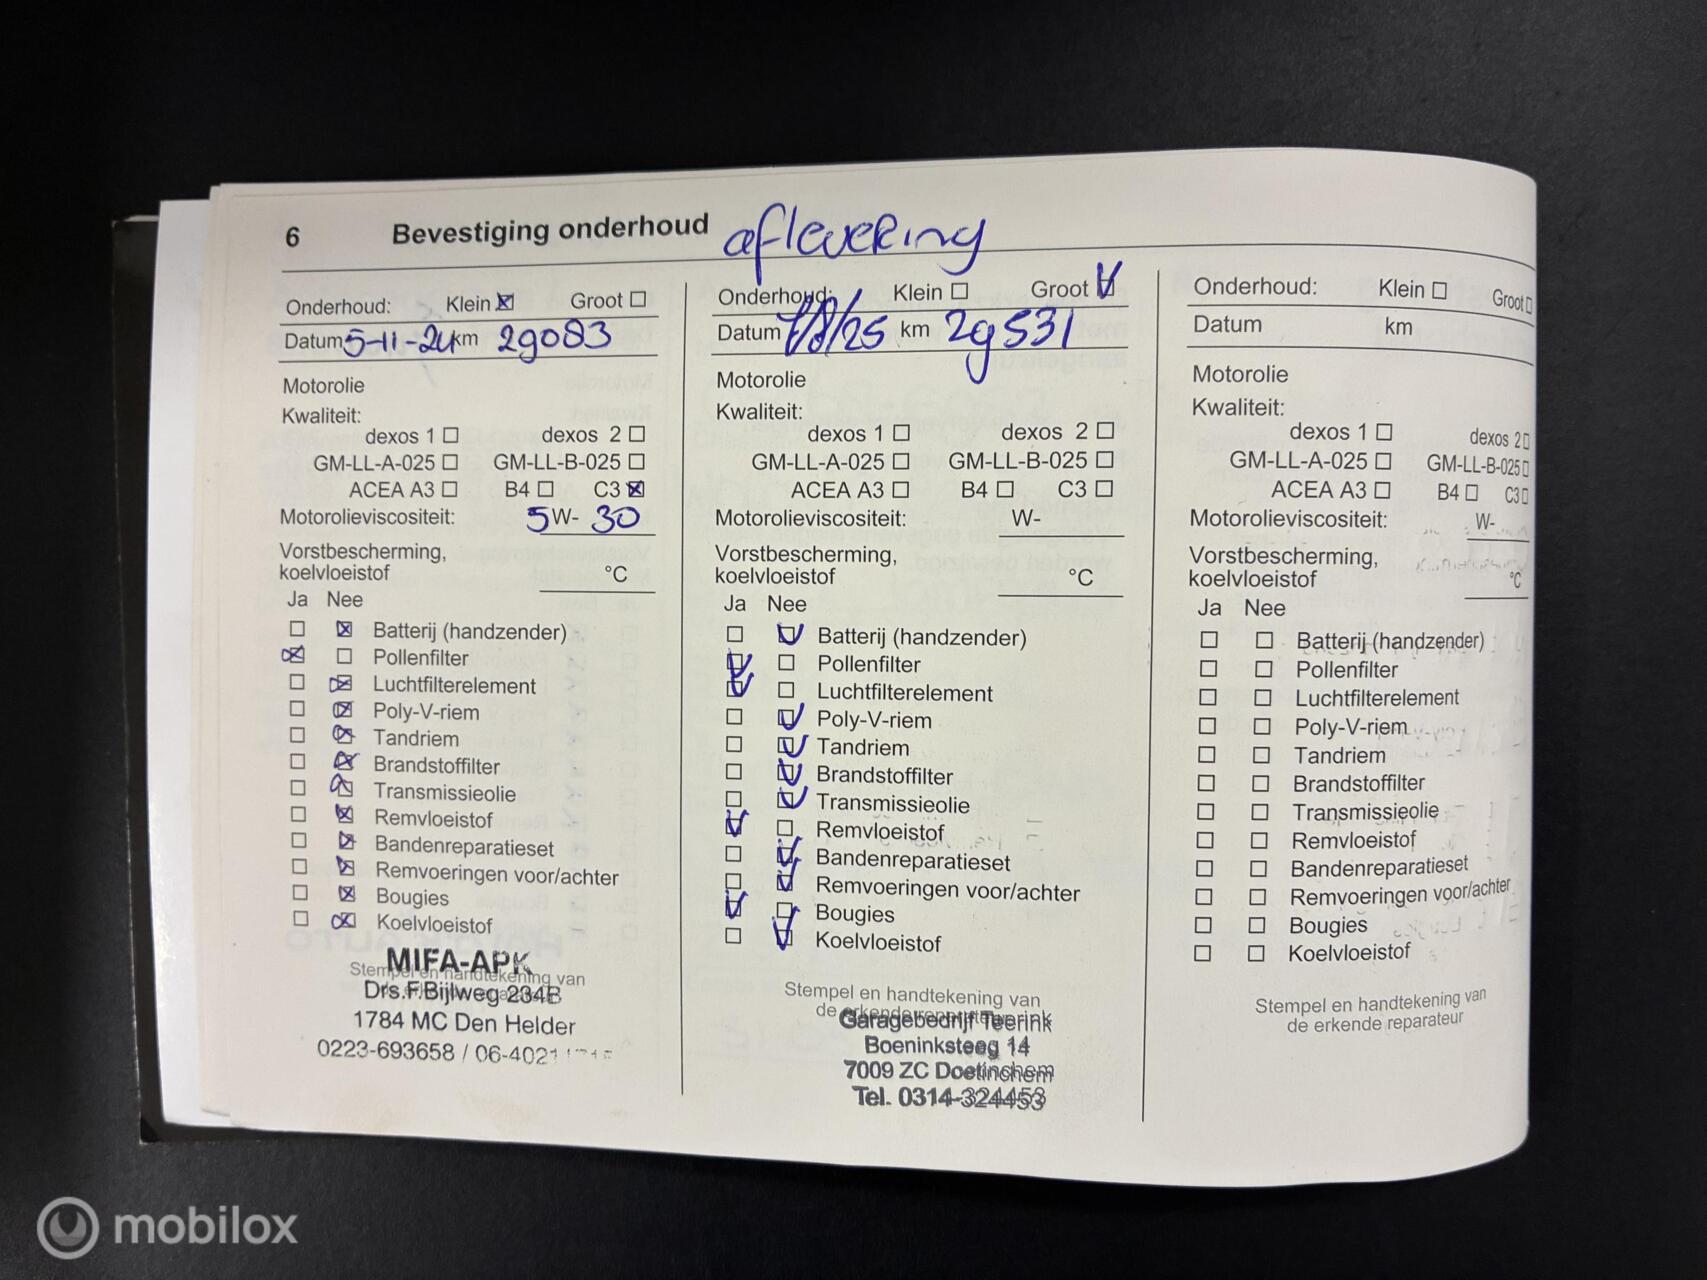 6 Bevestiging onderhoud aflevering
Onderhoud: Klein Groot
Datum 5-11-24 km 29083
Motorolie
Kwaliteit:
dexos 1 dexos 2
GM-LL-A-025 GM-LL-B-025
ACEA A3 B4 C3
Motorolieviscositeit: 5W- 30
Vorstbescherming,
koelvloeistof °C
Ja Nee
Batterij (handzender)
Pollenfilter
Luchtfilterelement
Poly-V-riem
Tandriem
Brandstoffilter
Transmissieolie
Remvloeistof
Bandenreparatieset
Remvoeringen voor/achter
Bougies
Koelvloeistof
MIFA-APK
Stempel en handtekening van
Drs.F.Bijlweg 234B
1784 MC Den Helder
0223-693658 / 06-4021
Onderhoud: Klein Groot
Datum /8/25 km 29531
Motorolie
Kwaliteit:
dexos 1 dexos 2
GM-LL-A-025 GM-LL-B-025
ACEA A3 B4 C3
Motorolieviscositeit: W-
Vorstbescherming,
koelvloeistof °C
Ja Nee
Batterij (handzender)
Pollenfilter
Luchtfilterelement
Poly-V-riem
Tandriem
Brandstoffilter
Transmissieolie
Remvloeistof
Bandenreparatieset
Remvoeringen voor/achter
Bougies
Koelvloeistof
Stempel en handtekening van
de erkende reparateur
Garagebedrijf Teerink
Boeninksteeg 14
7009 ZC Doetinchem
Tel. 0314-324453
Onderhoud: Klein Groot
Datum km
Motorolie
Kwaliteit:
dexos 1 dexos 2
GM-LL-A-025 GM-LL-B-025
ACEA A3 B4 C3
Motorolieviscositeit: W-
Vorstbescherming,
koelvloeistof °C
Ja Nee
Batterij (handzender)
Pollenfilter
Luchtfilterelement
Poly-V-riem
Tandriem
Brandstoffilter
Transmissieolie
Remvloeistof
Bandenreparatieset
Remvoeringen voor/achter
Bougies
Koelvloeistof
Stempel en handtekening van
de erkende reparateur
mobilox